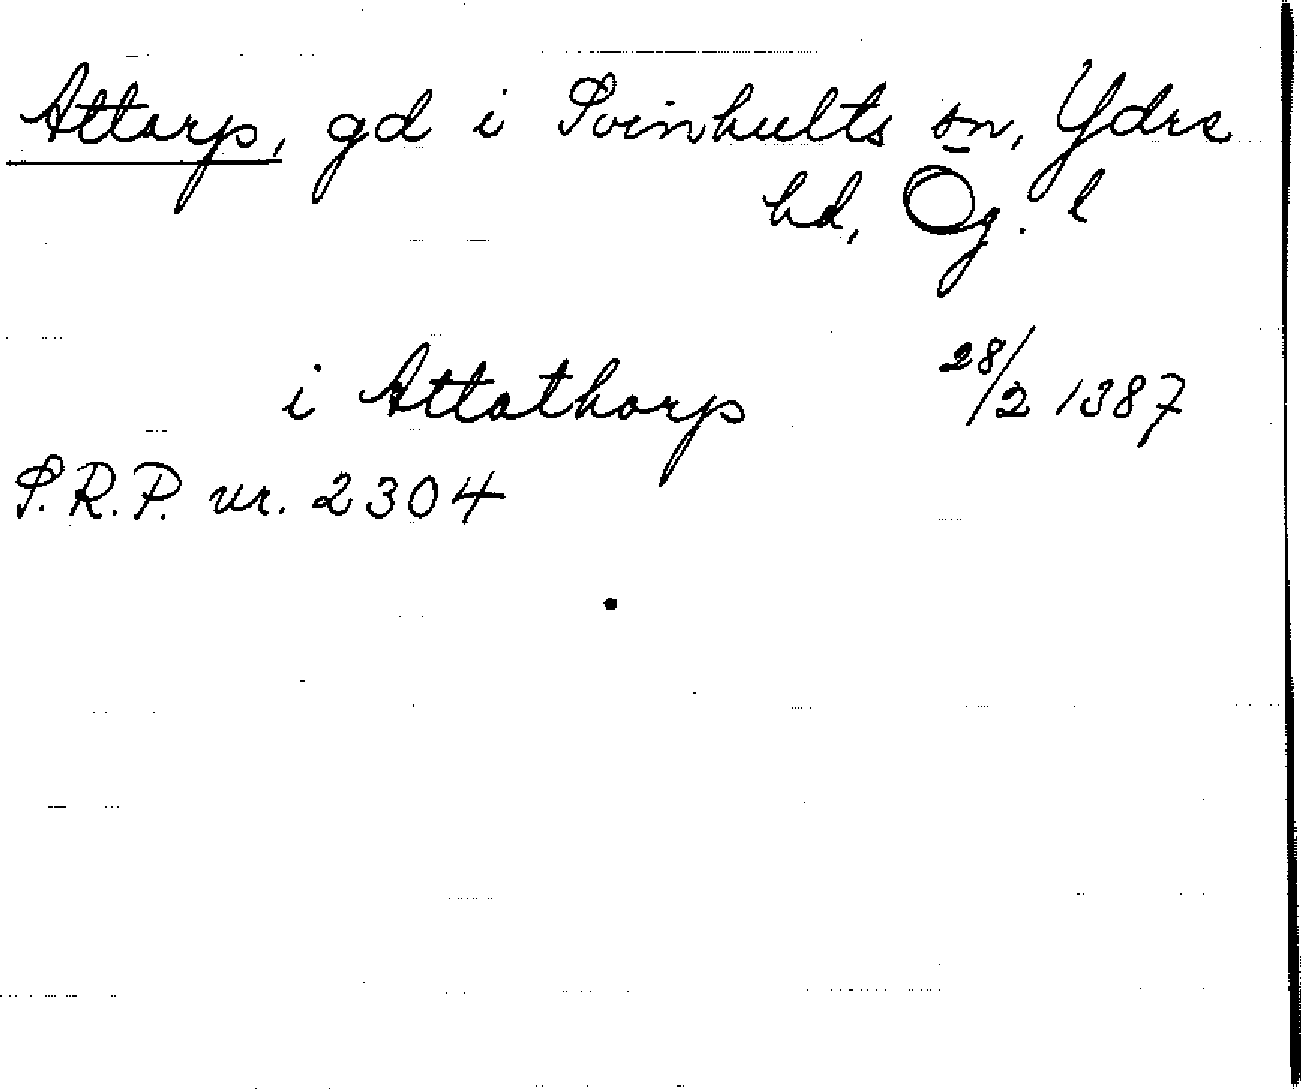 Attorp, gd i Svinhults sn, Ydre
hd, Ög. l
i Attathorp 28/2 1387
S.R.P. nr. 2304